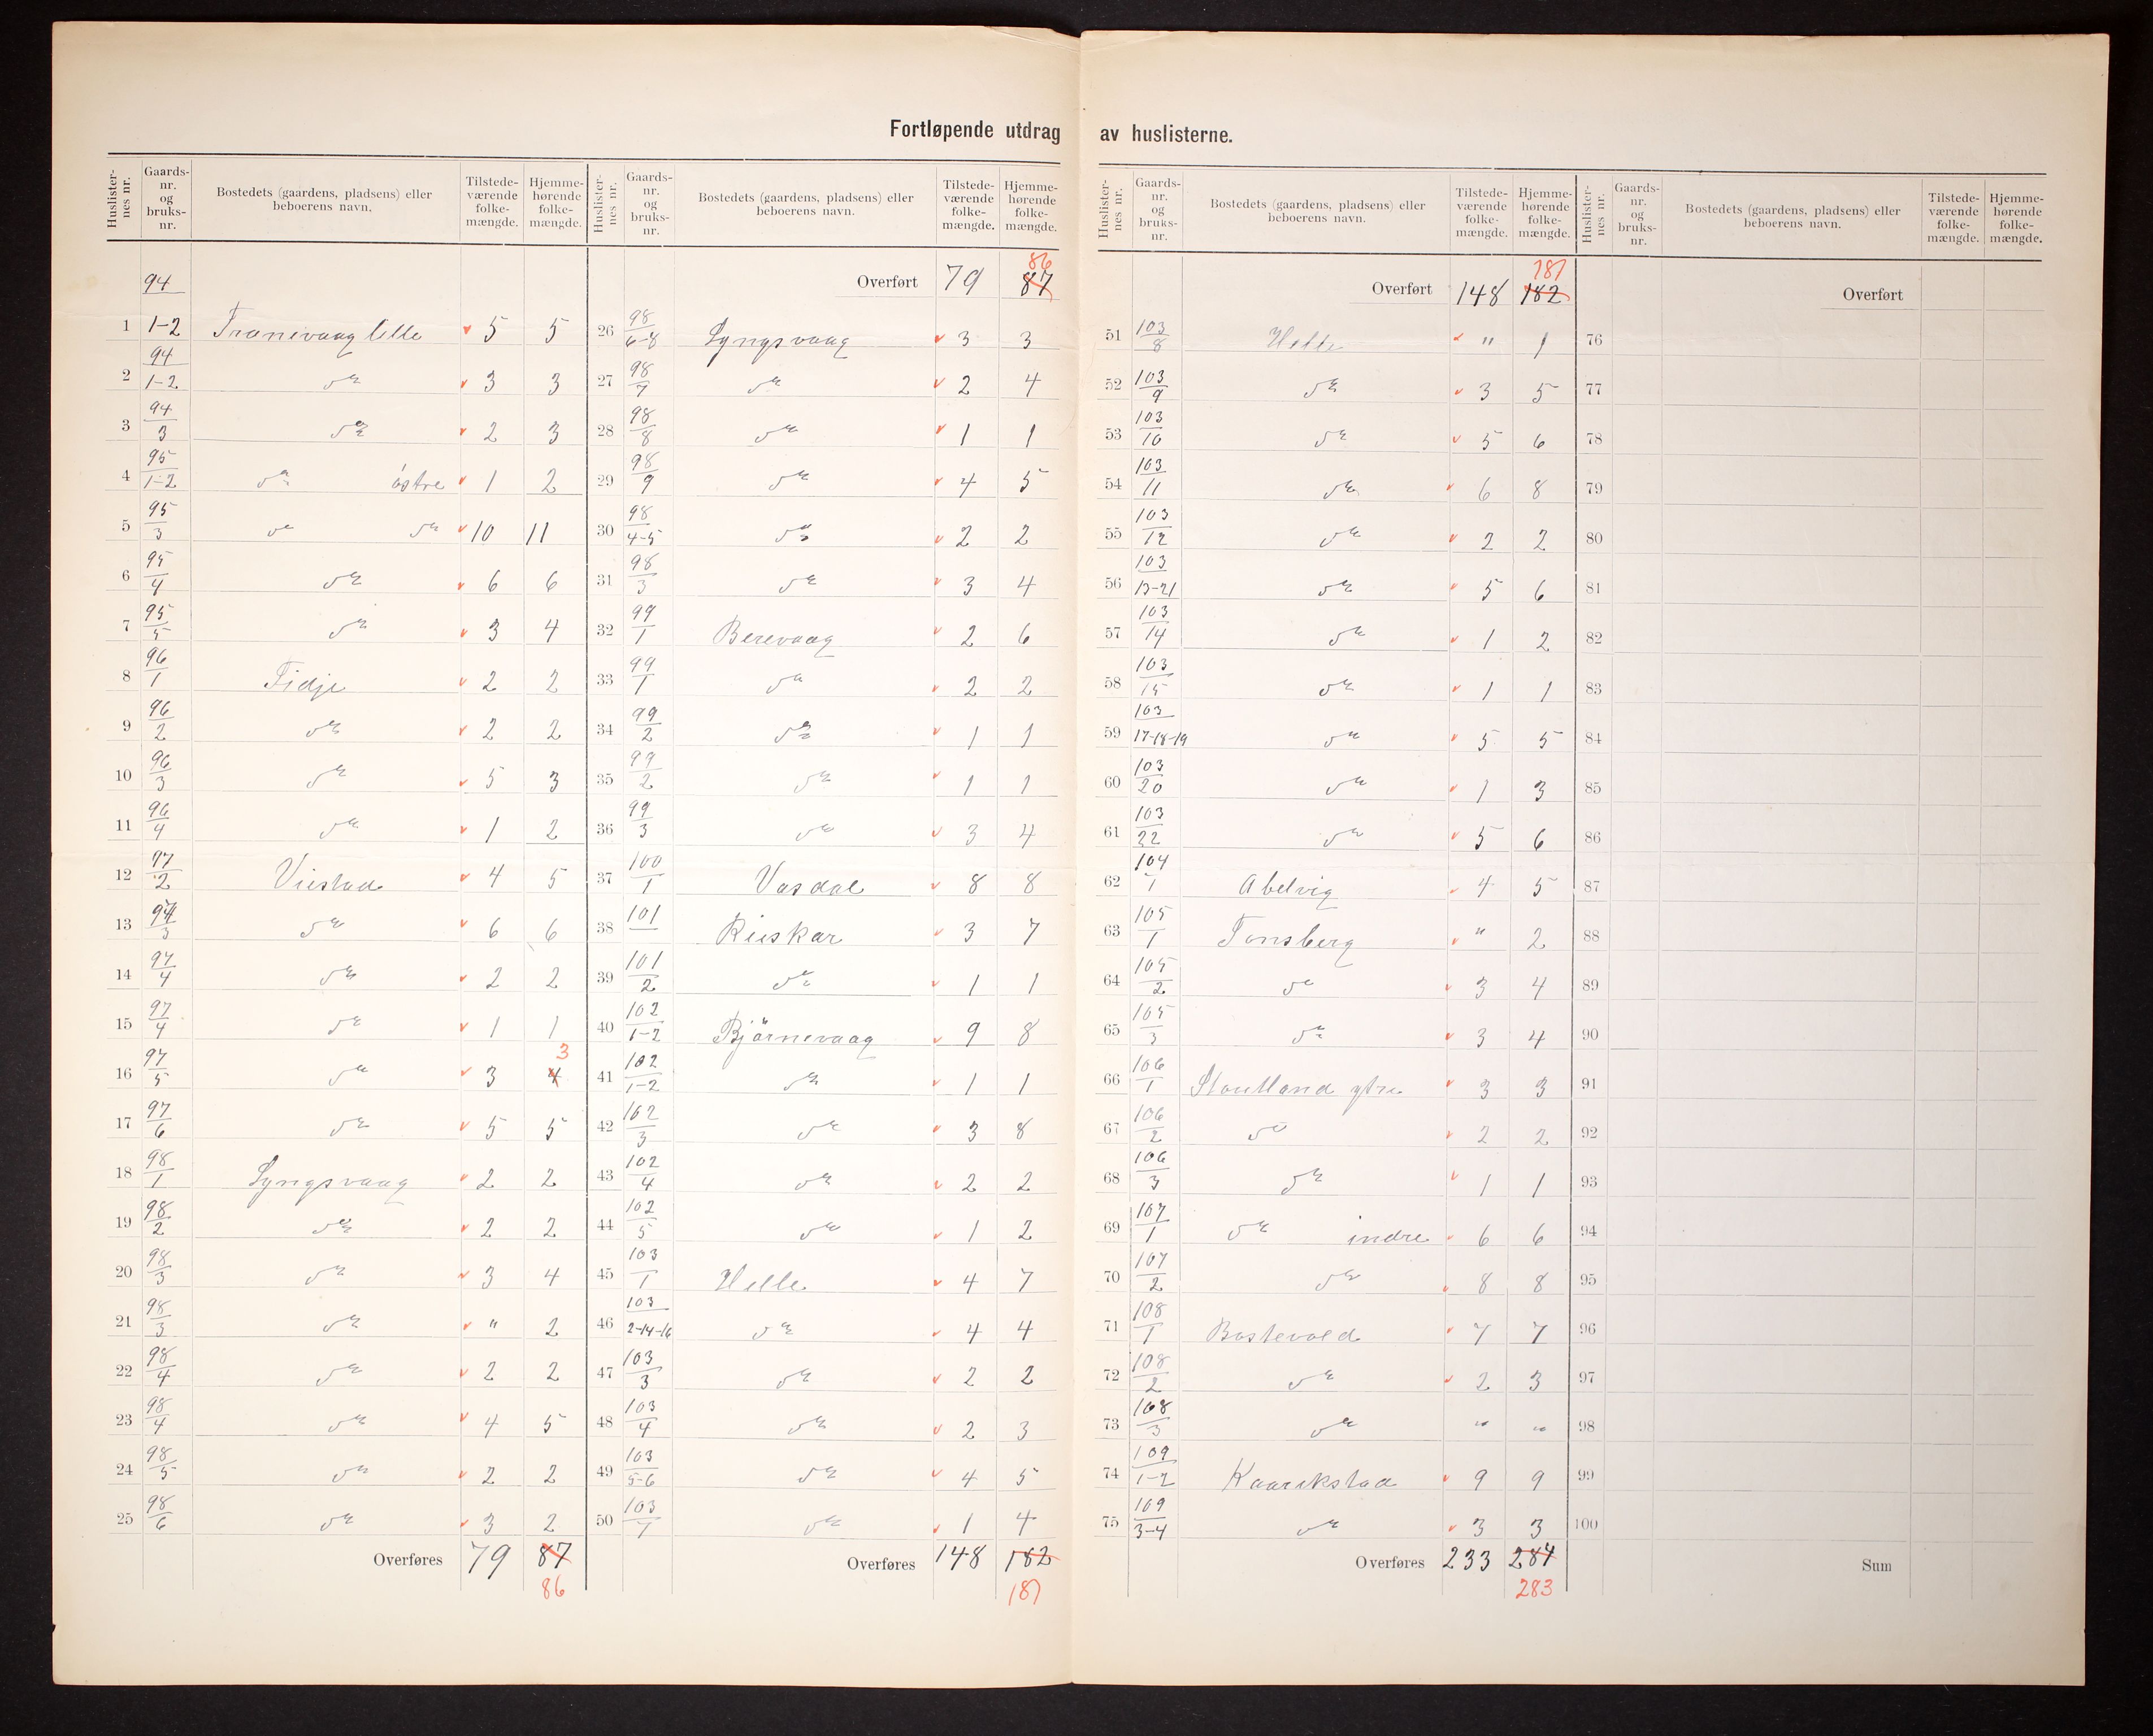 Fortløpende utdrag av huslisterne.
Huslister-nes nr. Gaards-nr. og bruks-nr. Bostedets (gaardens, pladsens) eller beboerens navn. Tilstede-værende folke-mængde. Hjemme-hørende folke-mængde.
1 94/1-2 Tranevaag lille 5 5
2 94/1-2 do 3 3
3 94/3 do 2 3
4 95/1-2 do östre 1 2
5 95/3 do do 10 11
6 95/4 do 6 6
7 95/5 do 3 4
8 96/1 Tidje 2 2
9 96/2 do 2 2
10 96/3 do 5 3
11 96/4 do 1 2
12 97/2 Viestad 4 5
13 97/3 do 6 6
14 97/4 do 2 2
15 97/4 do 1 1
16 97/5 do 3 4 3
17 97/6 do 5 5
18 98/1 Lyngsvaag 2 2
19 98/2 do 2 2
20 98/3 do 3 4
21 98/3 do " 2
22 98/4 do 2 2
23 98/4 do 4 5
24 98/5 do 2 2
25 98/6 do 3 2
Overføres 79 87
86
Huslister-nes nr. Gaards-nr. og bruks-nr. Bostedets (gaardens, pladsens) eller beboerens navn. Tilstede-værende folke-mængde. Hjemme-hørende folke-mængde.
86
Overført 79 87
26 98/6-8 Lyngsvaag 3 3
27 98/7 do 2 4
28 98/8 do 1 1
29 98/9 do 4 5
30 98/4-5 do 2 2
31 98/3 do 3 4
32 99/1 Berevaag 2 6
33 99/1 do 2 2
34 99/2 do 1 1
35 99/2 do 1 1
36 99/3 do 3 4
37 100/1 Vasdal 8 8
38 101 Rieskar 3 7
39 101/2 do 1 1
40 102/1-2 Björnevaag 9 8
41 102/1-2 do 1 1
42 102/3 do 3 8
43 102/4 do 2 2
44 102/5 do 1 2
45 103/1 Helle 4 7
46 103/2-14-16 do 4 4
47 103/3 do 2 2
48 103/4 do 2 3
49 103/5-6 do 4 5
50 103/7 do 1 4
Overføres 148 182
181
Huslister-nes nr. Gaards-nr. og bruks-nr. Bostedets (gaardens, pladsens) eller beboerens navn. Tilstede-værende folke-mængde. Hjemme-hørende folke-mængde.
181
Overført 148 182
51 103/8 Helle " 1
52 103/9 do 3 5
53 103/10 do 5 6
54 103/11 do 6 8
55 103/12 do 2 2
56 103/13-21 do 5 6
57 103/14 do 1 2
58 103/15 do 1 1
59 103/17-18-19 do 5 5
60 103/20 do 1 3
61 103/22 do 5 6
62 104/1 Abelvig 4 5
63 105/1 Tonsberg " 2
64 105/2 do 3 4
65 105/3 do 3 4
66 106/1 Stoutland ytre 3 3
67 106/2 do 2 2
68 106/3 do 1 1
69 107/1 do indre 6 6
70 107/2 do 8 8
71 108/1 Bastevold 7 7
72 108/2 do 2 3
73 108/3 do " "
74 109/1-2 Kaarikstad 9 9
75 109/3-4 do 3 3
Overføres 233 284
283
Huslister-nes nr. Gaards-nr. og bruks-nr. Bostedets (gaardens, pladsens) eller beboerens navn. Tilstede-værende folke-mængde. Hjemme-hørende folke-mængde.
Overført
76
77
78
79
80
81
82
83
84
85
86
87
88
89
90
91
92
93
94
95
96
97
98
99
100
Sum